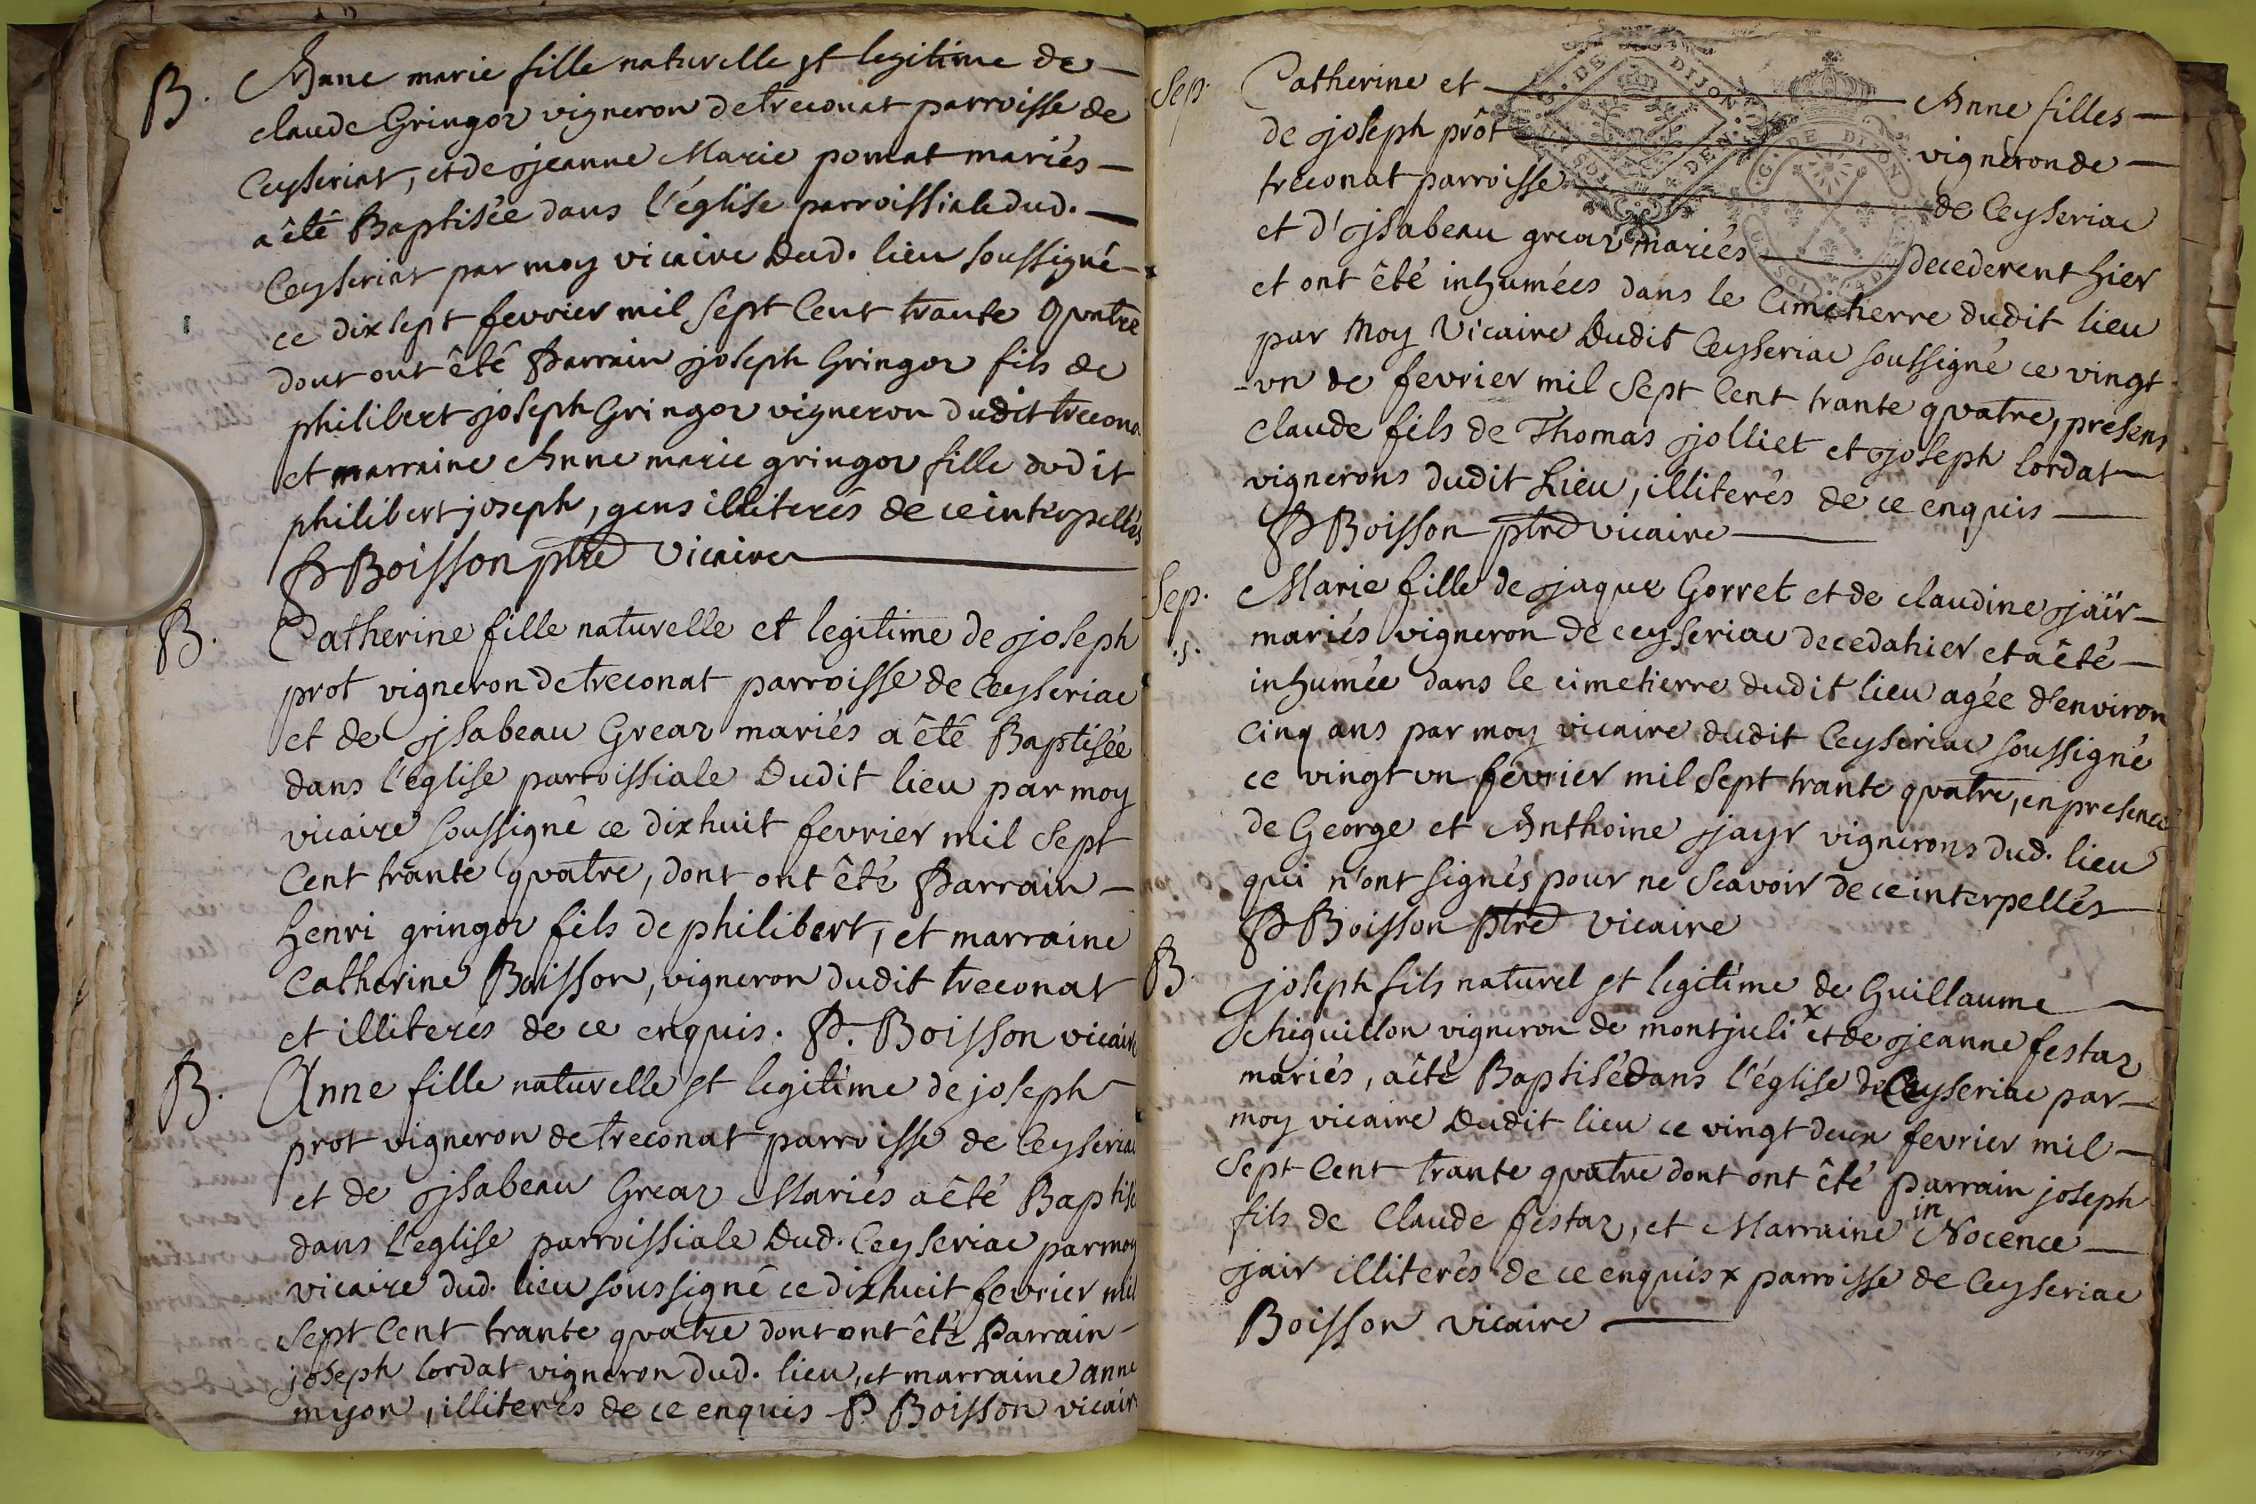 B.
Anne marie fille naturelle et legitime de
claude Gringoz vigneron de treconat parroisse de
Ceyseriat, et de jeanne Marie pomat mariés
a êté Baptisée dans l'église parroissiale dud.
Ceyseriat par moy vicaire Dud. lieu soussigné
ce dix sept fevrier mil sept Cent trante quatre
dont ont êté Parrain joseph Gringoz fils de
philibert joseph Gringoz vigneron dudit trecona
et marraine Anne marie gringoz fille dudit
philibert joseph, gens illiterés de ce interpellés
P Boisson ptre vicaire
B.
Catherine fille naturelle et legitime de joseph
prot vigneron de treconat parroisse de Ceyseriac
et de jsabeau Greaz mariés a êté Baptisée
dans l'eglise parroissiale Dudit lieu par moy
vicaire soussigné ce dixhuit fevrier mil sept
Cent trante quatre, dont ont êté Parrain
henri gringoz fils de philibert, et marraine
Catherine Boisson, vigneron dudit treconat
et illiterés de ce enquis. P. Boisson vicaire
B.
Anne fille naturelle et legitime de joseph
prot vigneron de treconat parroisse de Ceyseriac
et de jsabeau Greaz Mariés a êté Baptisé
dans l'eglise parroissiale Dud. Ceyseriac par moy
vicaire dud. lieu soussigné ce dixhuit fevrier mil
sept Cent trante quatre dont ont êté Parrain
joseph lordat vigneron dud. lieu, et marraine anne
mijon, illiterés de ce enquis P. Boisson vicaire
Sep.
Catherine et Anne filles
de joseph prôt vigneron de
treconat parroisse de Ceyseriac
et d'jsabeau greaz mariés decederent hier
et ont êté inhumées dans le Cimetierre dudit lieu
par Moy Vicaire Dudit Ceyseriac soussigné ce vingt
-vn de fevrier mil sept Cent trante quatre, presens
Claude fils de Thomas jolliet et joseph lordat
vignerons dudit Lieu, illiterés de ce enquis
P Boisson ptre vicaire
Sep.
.s.
Marie fille de jaque Gorret et de claudine jaïr
mariés vigneron de ceyseriac deceda hier et a êté
inhumée dans le cimetierre dudit lieu agée d'environ
Cinq ans par moy vicaire dudit Ceyseriac soussigné
ce vingt vn fevrier mil sept trante quatre, en presence
de George et Anthoine jayr vignerons dud. lieu
qui n'ont signés pour ne scavoir de ce interpellés
P Boisson ptre vicaire
B.
joseph fils naturel et legitime de Guillaume
chiguillon vigneron de montjuli x et de jeanne festaz
mariés, a êté Baptisé dans l'église de Ceyseriac par
moy vicaire Dudit lieu ce vingt deux fevrier mil
sept Cent trante quatre dont ont êté parrain joseph
fils de Claude festaz, et Marraine in Nocence
jair illiterés de ce enquis x parroisse de Ceyseriac
Boisson vicaire
G. DE DIJON
G. DE DIJON